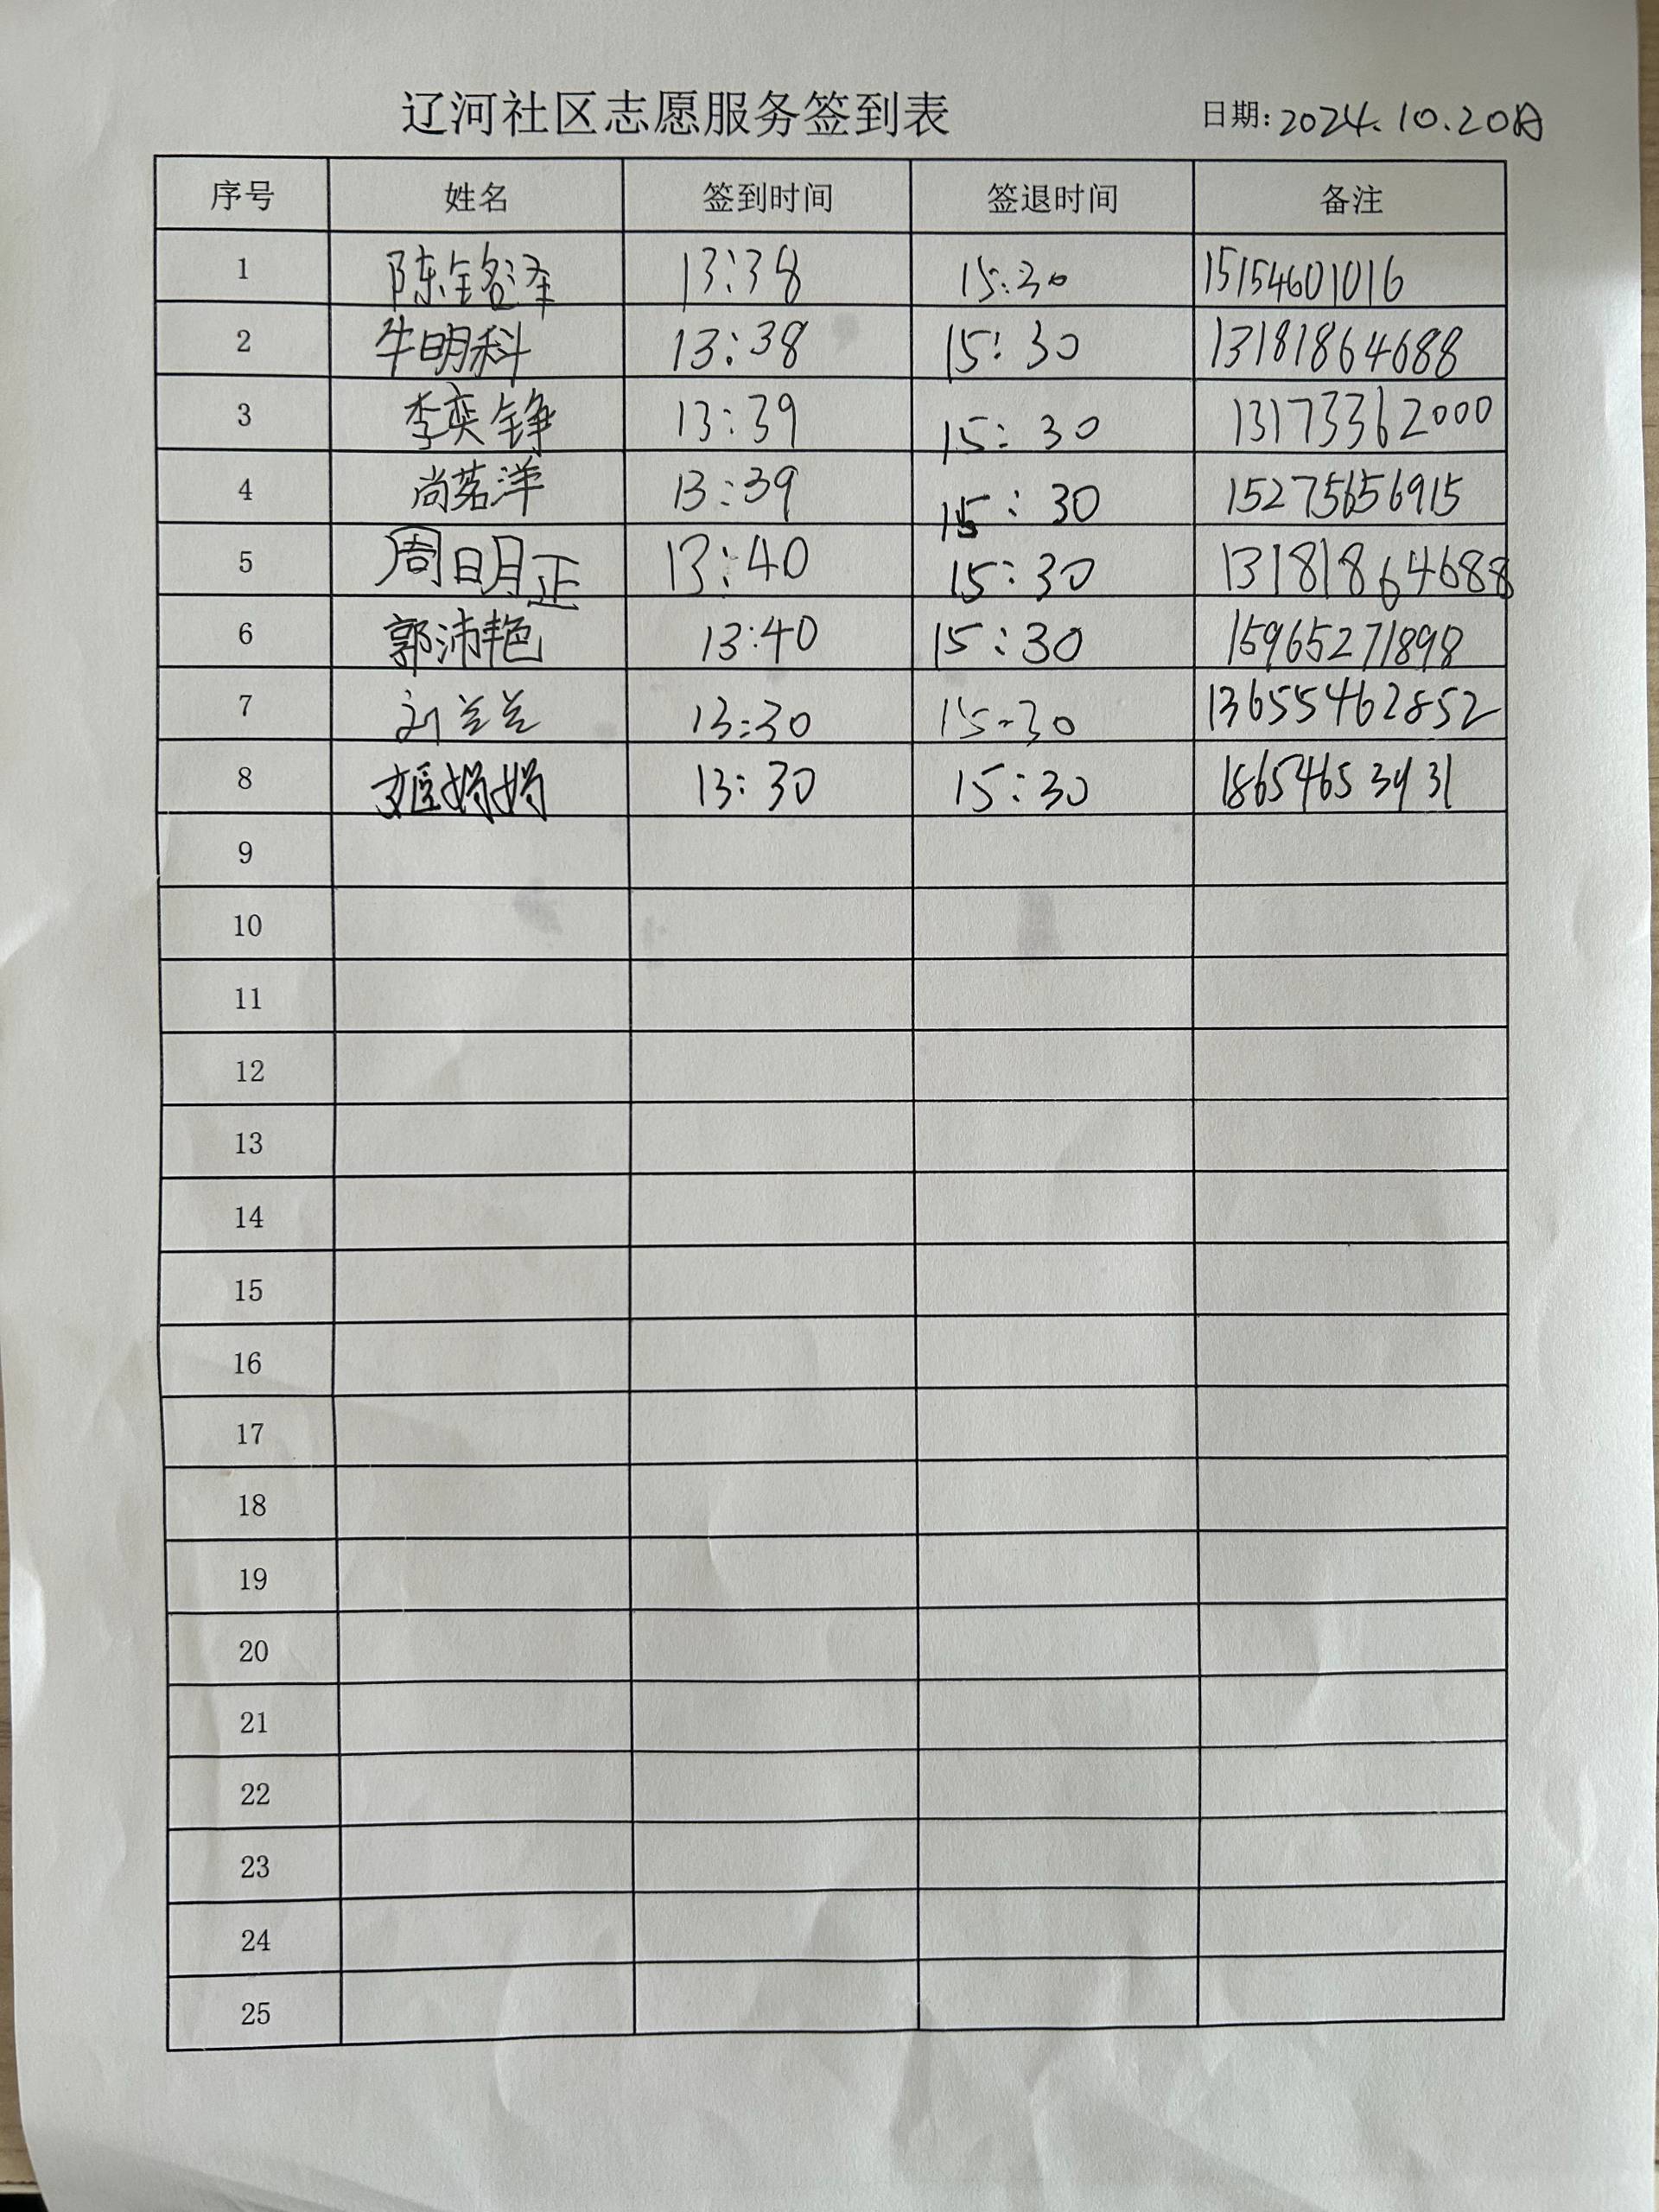 辽河社区志愿服务签到表 日期: 2024.10.20日
序号 姓名 签到时间 签退时间 备注
1 陈铭泽 13:38 15:30 15154601016
2 牛明科 13:38 15:30 13181864688
3 李奕铮 13:39 15:30 13173362000
4 尚茗洋 13:39 15:30 15275656915
5 周明正 13:40 15:30 13181864688
6 郭沛艳 13:40 15:30 15965271898
7 刘兰兰 13:30 15:30 13655462852
8 娟娟 13:30 15:30
9
10
11
12
13
14
15
16
17
18
19
20
21
22
23
24
25